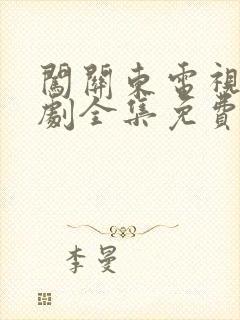 闖關東電視
劇全集免費
李曼